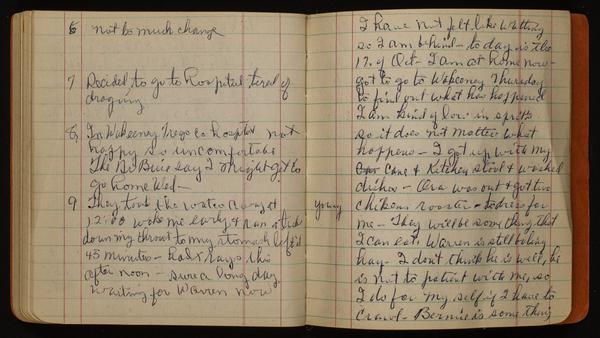 6 not to much change
7 Decided to go to hospital tired of
draging
8 In Wakeeney Trego co hospital not
happy so uncomfortabe
The Dr Buis say I might get to
go home Wed—
9 They took the water away at
12:00 woke me early & run a tube
down my throat to my stomach left it
45 minutes— had x rays this
after noon— sure a long day
waiting for Warren now
I have not felt like writting
so I am behind— to day is the
17 of Oct— I am at home now—
got to go to Wakeeney Thursday
to find out what has happened
I am kind of low in sprits
so it does not matter what
happens— I got up with my
Cane & Kitchen stool & washed
dishes— Ora was out & got two
young chickens rooster— to dress for
me— They will be some thing that
I can eat. Warren is still baling
hay— I don't think he is well, he
is not to patient with me, so
I do for my self if I have to
crawl— Bernie is some thing